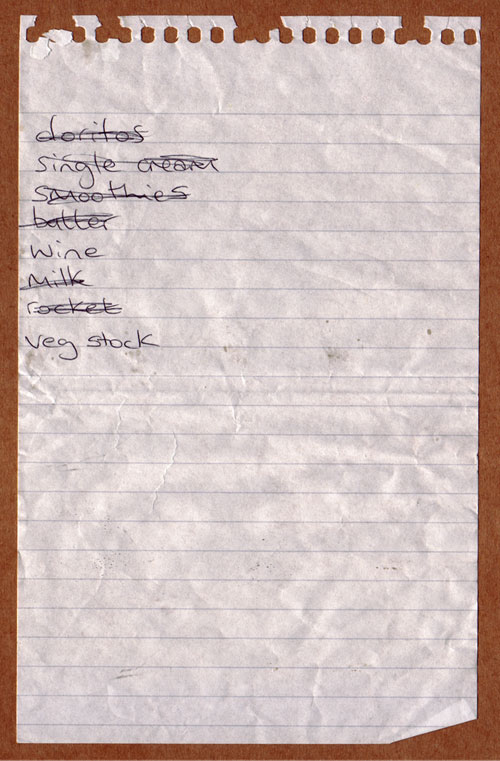 doritos
single cream
smoothies
butter
wine
milk
rocket
veg stock